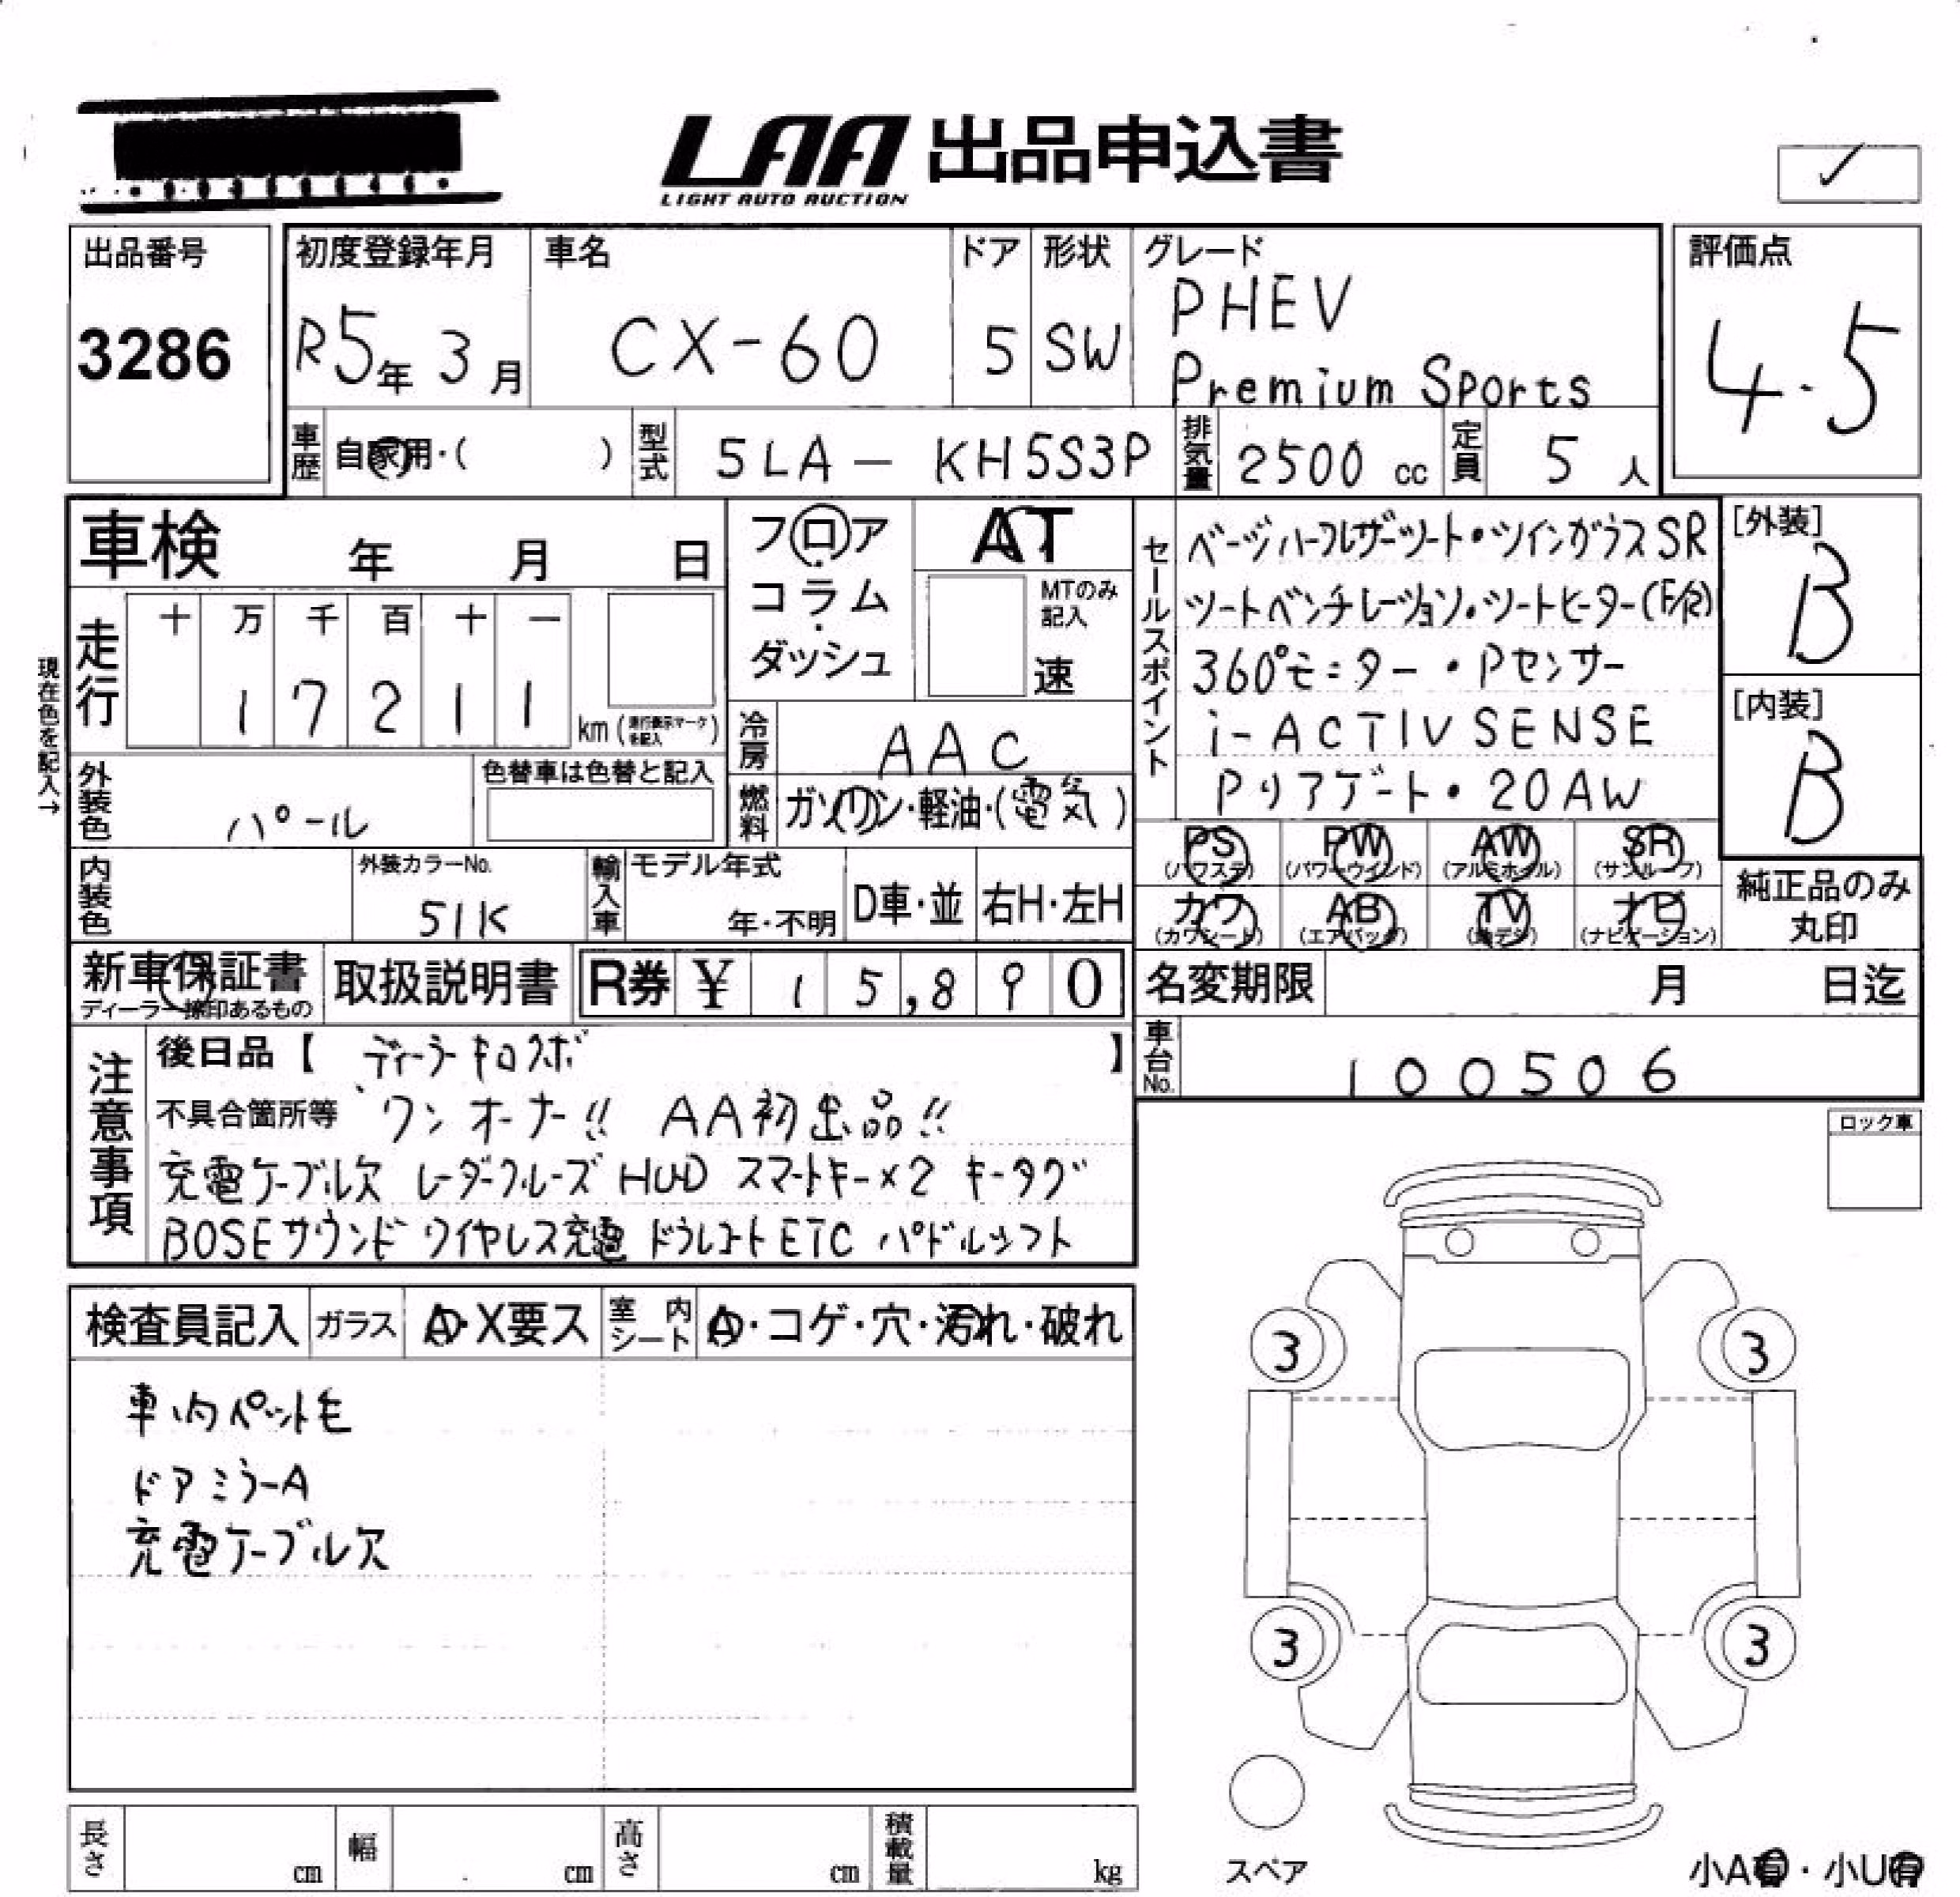 LAA 出品申込書
LIGHT AUTO AUCTION
出品番号
3286
初度登録年月
R5年 3月
車名
CX-60
ドア
5
形状
SW
グレード
PHEV
Premium Sports
評価点
4.5
車歴 自家用・( )
型式 5LA - KH5S3P
排気量 2500 cc
定員 5 人
車検 年 月 日
フロア
コラム
・
ダッシュ
AT
MTのみ
記入
速
セールスポイント
ベージハーフレザーシート・ツインガラスSR
シートベンチレーション・シートヒーター(F/R)
360°モニター・Pセンサー
i-ACTIVSENSE
Pリアゲート・20AW
[外装]
B
[内装]
B
現在色を記入→
走行
十 万 千 百 十 一
1 7 2 1 1
km (走行表示マークを記入)
冷房 AAC
燃料 ガソリン・軽油・(電気)
外装色
パール
色替車は色替と記入
内装色
外装カラーNo.
51K
輸入車
モデル年式
年・不明
D車・並
右H・左H
PS
(パワステ)
PW
(パワーウインド)
AW
(アルミホイル)
SR
(サンルーフ)
カワ
(カワシート)
AB
(エアバッグ)
TV
(地デジ)
ナビ
(ナビゲーション)
純正品のみ
丸印
新車保証書
ディーラー捺印あるもの
取扱説明書
R券 ¥ 1 5,8 9 0
名変期限 月 日迄
車台No. 100506
注意事項
後日品【 ディーラーキロスポ 】
不具合箇所等 ワンオーナー!! AA初出品!!
充電ケーブル欠 レーダークルーズ HUD スマートキー×2 キータグ
BOSEサウンド ワイヤレス充電 ドラレコートETC パドルシフト
ロック車
検査員記入
ガラス
A・X要ス
室内シート
A・コゲ・穴・汚れ・破れ
車内ペット毛
ドアミラーA
充電ケーブル欠
3
3
3
3
スペア
長さ cm
幅 cm
高さ cm
積載量 kg
小A有・小U有